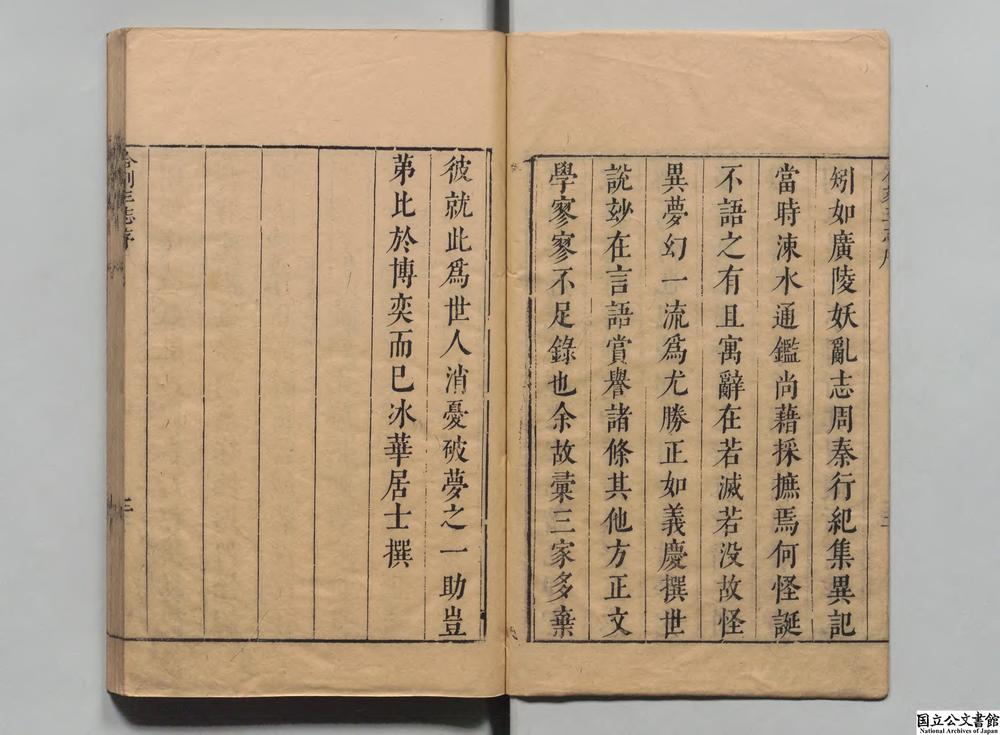 矧如廣陵妖亂志周秦行紀集異記
當時涑水通鑑尚藉採摭焉何怪誕
不語之有且寓辭在若滅若没故怪
異夢幻一流爲尤勝正如義慶撰世
說玅在言語賞譽諸條其他方正文
學寥寥不足錄也余故彙三家多棄
彼就此爲世人消憂破夢之一助豈
弟比於博奕而已冰華居士撰
合刻三志序
三
国立公文書館
National Archives of Japan